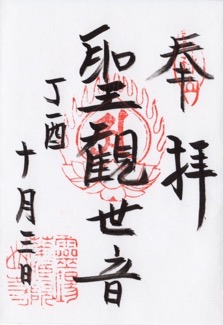 奉拝
聖觀世音
丁酉
十月三日